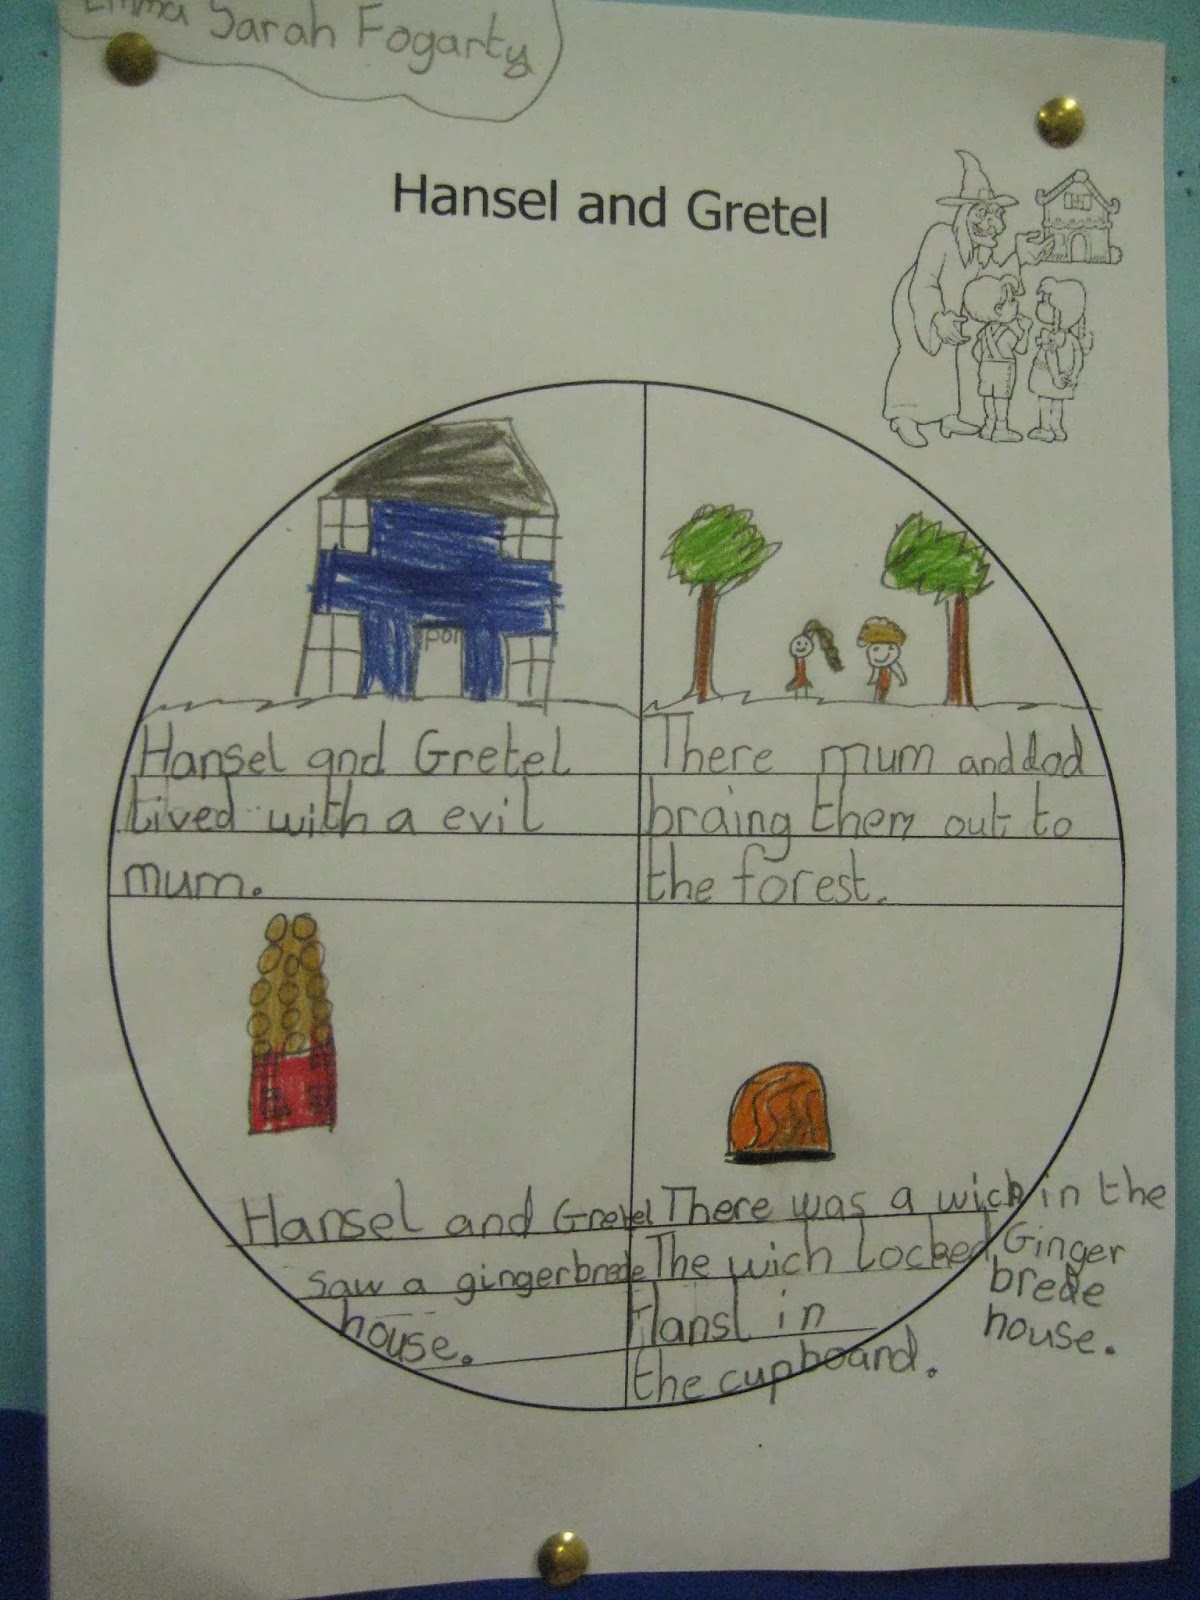 Emma Sarah Fogarty
Hansel and Gretel
Hansel and Gretel
lived with a evil
mum.
There mum and dad
braing them out to
the forest.
Hansel and Gretel
saw a gingerbrede
house.
There was a wich in the
Ginger
brede
house.
The wich locked
Hansl in
the cupboard.